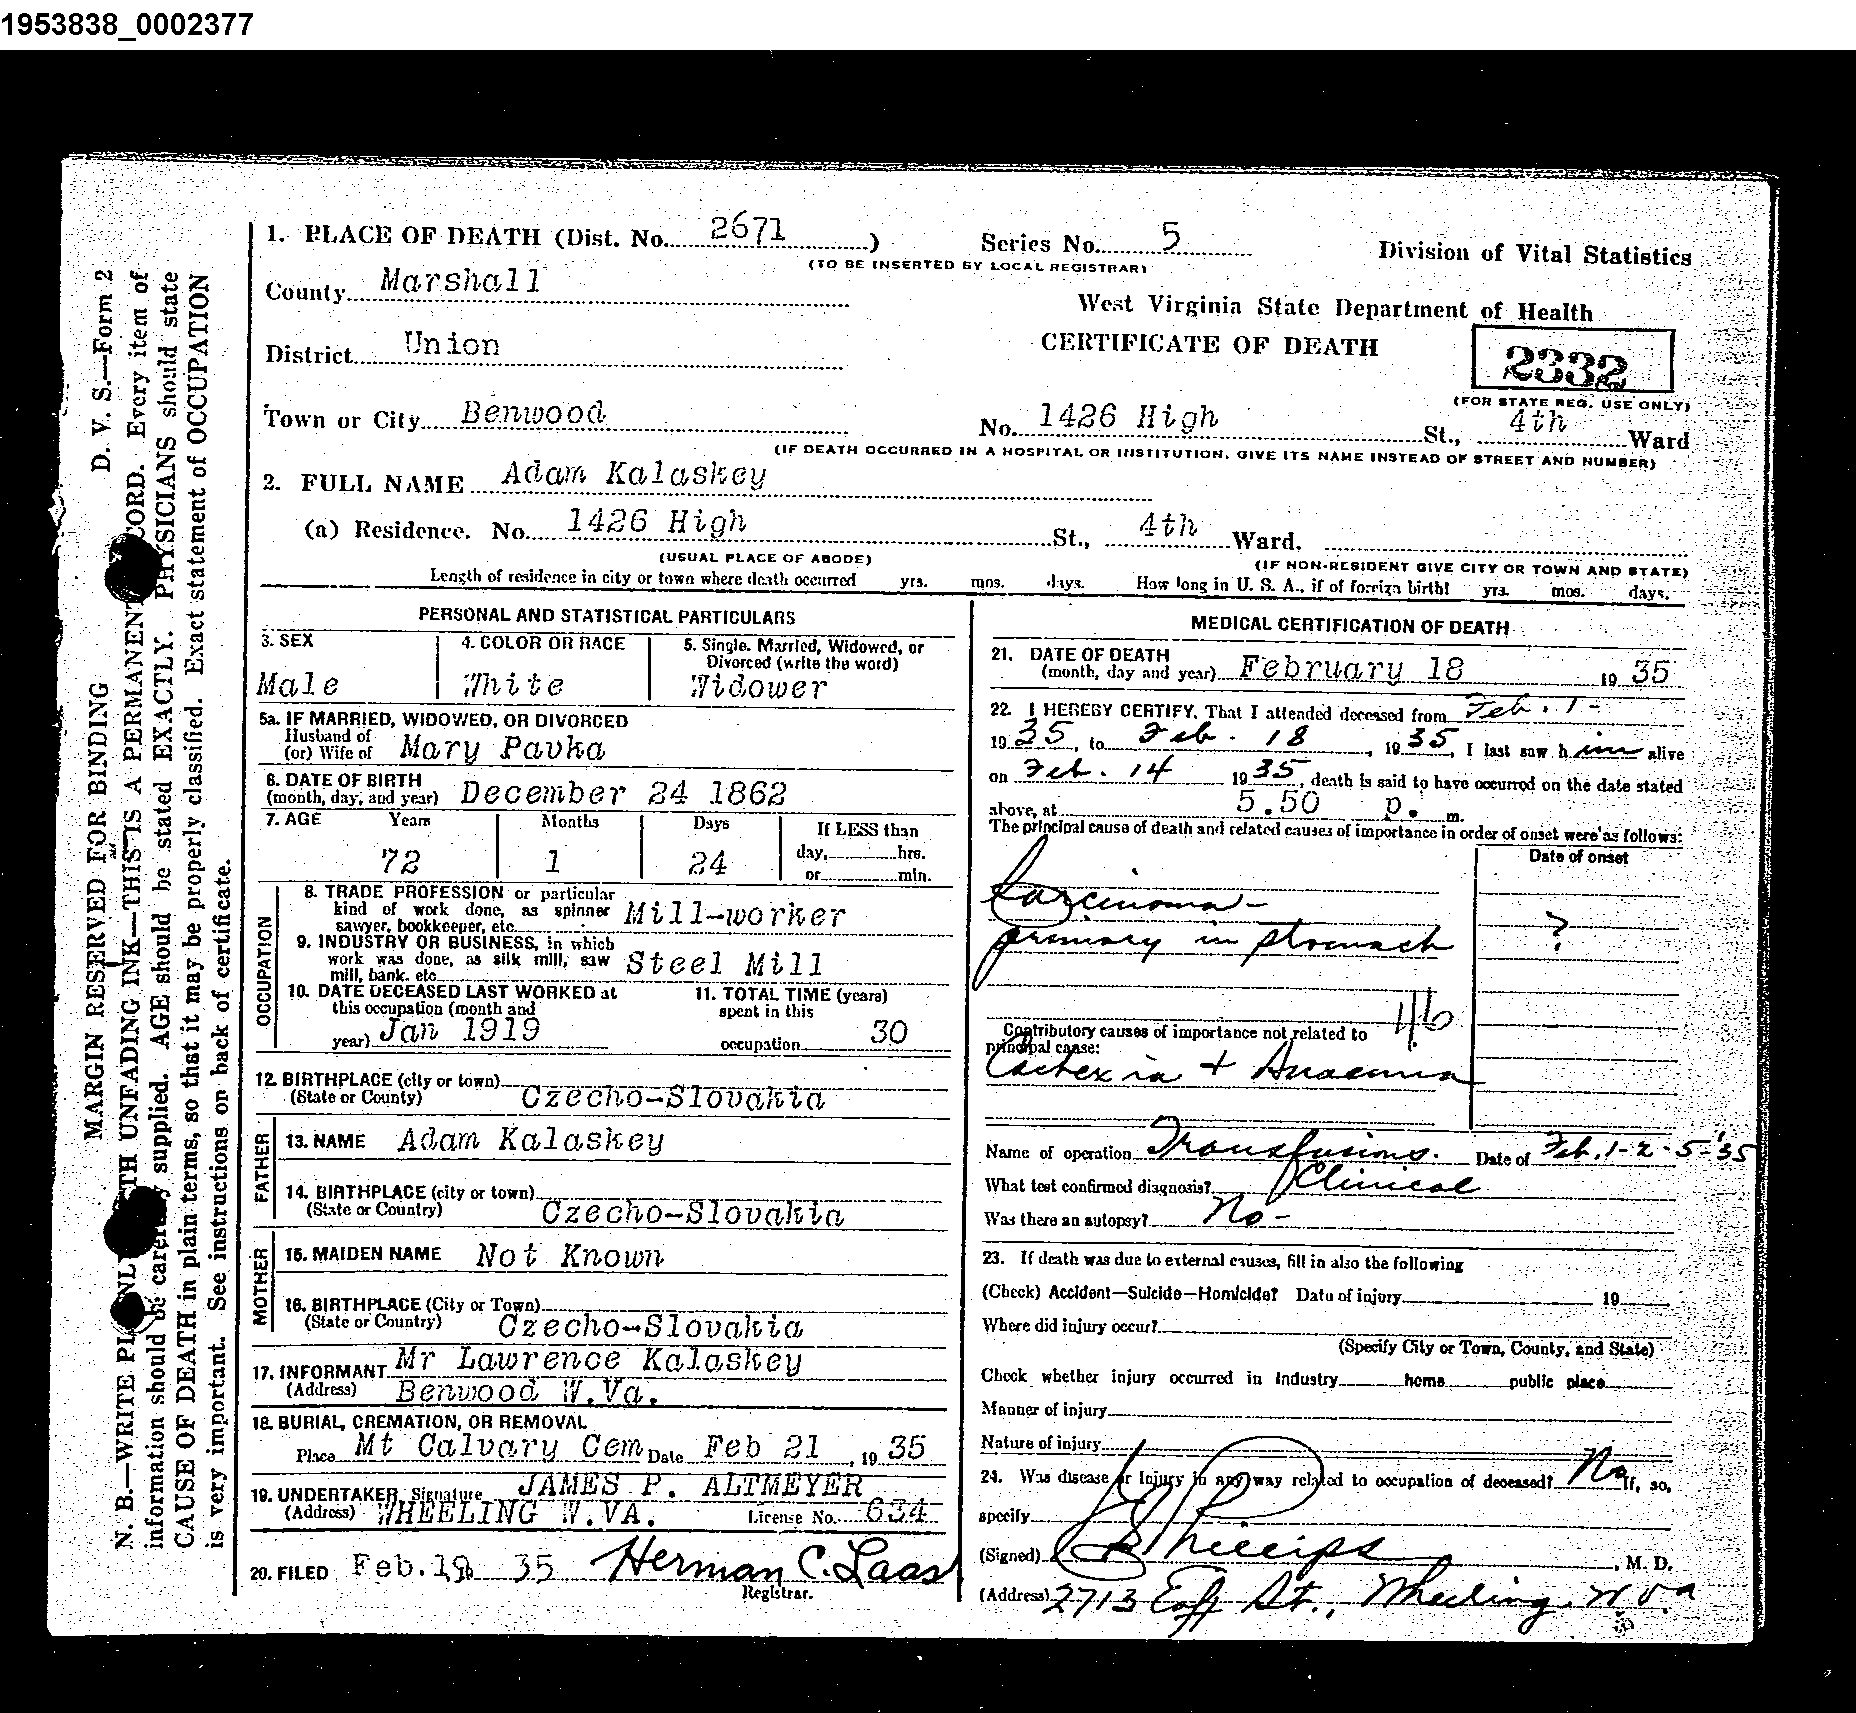 1953838_0002377
1. PLACE OF DEATH (Dist. No. 2671 ) Series No. 5 Division of Vital Statistics
(TO BE INSERTED BY LOCAL REGISTRAR)
County Marshall
West Virginia State Department of Health
District Union
CERTIFICATE OF DEATH
2332
(FOR STATE REG. USE ONLY)
Town or City Benwood No. 1426 High St., 4th Ward
(IF DEATH OCCURRED IN A HOSPITAL OR INSTITUTION, GIVE ITS NAME INSTEAD OF STREET AND NUMBER)
2. FULL NAME Adam Kalaskey
(a) Residence. No. 1426 High St., 4th Ward.
(USUAL PLACE OF ABODE) (IF NON-RESIDENT GIVE CITY OR TOWN AND STATE)
Length of residence in city or town where death occurred yrs. mos. days. How long in U. S. A., if of foreign birth? yrs. mos. days.
PERSONAL AND STATISTICAL PARTICULARS
3. SEX 4. COLOR OR RACE 5. Single. Married, Widowed, or
Divorced (write the word)
Male White Widower
5a. IF MARRIED, WIDOWED, OR DIVORCED
Husband of
(or) Wife of Mary Pavka
6. DATE OF BIRTH
(month, day, and year) December 24 1862
7. AGE Years Months Days If LESS than
day, hrs.
72 1 24 or min.
OCCUPATION
8. TRADE PROFESSION or particular
kind of work done, as spinner
sawyer, bookkeeper, etc. Mill-worker
9. INDUSTRY OR BUSINESS, in which
work was done, as silk mill, saw
mill, bank, etc Steel Mill
10. DATE DECEASED LAST WORKED at
this occupation (month and
year) Jan 1919
11. TOTAL TIME (years)
spent in this
occupation 30
12. BIRTHPLACE (city or town)
(State or County) Czecho-Slovakia
FATHER
13. NAME Adam Kalaskey
14. BIRTHPLACE (city or town)
(State or Country) Czecho-Slovakia
MOTHER
15. MAIDEN NAME Not Known
16. BIRTHPLACE (City or Town)
(State or Country) Czecho-Slovakia
17. INFORMANT Mr Lawrence Kalaskey
(Address) Benwood W.Va.
18. BURIAL, CREMATION, OR REMOVAL
Place Mt Calvary Cem Date Feb 21, 1935
19. UNDERTAKER Signature JAMES P. ALTMEYER
(Address) WHEELING W.VA. License No. 634
20. FILED Feb. 19 35 Herman C. Laas
Registrar.
MEDICAL CERTIFICATION OF DEATH
21. DATE OF DEATH
(month, day and year) February 18 19 35
22. I HEREBY CERTIFY, That I attended deceased from Feb. 1-
1935, to Feb. 18, 1935, I last saw him alive
on Feb. 14 1935, death is said to have occurred on the date stated
above, at 5.50 p. m.
The principal cause of death and related causes of importance in order of onset were as follows:
Date of onset
Carcinoma -
primary in stomach ?
46
Contributory causes of importance not related to
principal cause:
Cachexia + Anaemia
Name of operation Transfusions. Date of Feb. 1-2-5-'35
What test confirmed diagnosis? Clinical
Was there an autopsy? No-
23. If death was due to external causes, fill in also the following
(Check) Accident—Suicide—Homicide? Date of injury 19
Where did injury occur?
(Specify City or Town, County, and State)
Check whether injury occurred in Industry home public place
Manner of injury
Nature of injury
24. Was disease or Injury in any way related to occupation of deceased? No If, so,
specify
(Signed) Phillips, M. D.
(Address) 2713 Eoff St., Wheeling, W. Va
MARGIN RESERVED FOR BINDING D. V. S.—Form 2
N. B.—WRITE PLAINLY WITH UNFADING INK—THIS IS A PERMANENT RECORD. Every item of
information should be carefully supplied. AGE should be stated EXACTLY. PHYSICIANS should state
CAUSE OF DEATH in plain terms, so that it may be properly classified. Exact statement of OCCUPATION
is very important. See instructions on back of certificate.